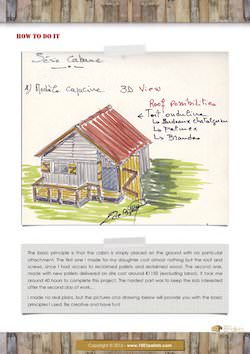 HOW TO DO IT
Série Cabane
1) Modèle capucine 3D View
Roof possibilities
Toit onduline
Le Bardeaux
The basic principle is that the cabin is simply placed on the ground with no particular
attachment. The first one I made for my daughter cost almost nothing but the roof and
screws, since I had access to reclaimed pallets and reclaimed wood. The second one,
made with new pallets delivered on site cost around €1150 (excluding labor). It took me
around 40 hours to complete this project. The hardest part was to keep the kids interested
after the second day of work...
I made no real plans, but the pictures and drawing below will provide you with the basic
principles I used. Be creative and have fun!
Copyright © 2016 - www.1001pallets.com